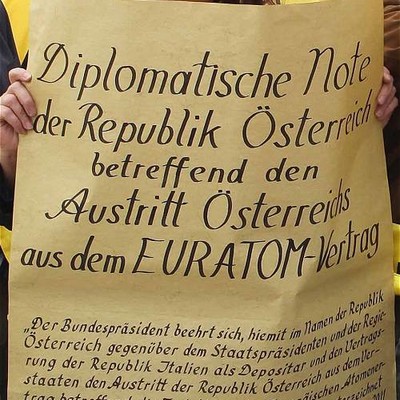 Diplomatische Note
der Republik Österreich
betreffend den
Austritt Österreichs
aus dem EURATOM-Vertrag
„Der Bundespräsident beehrt sich, hiemit im Namen der Republik
Österreich gegenüber dem Staatspräsidenten und der Regie-
rung der Republik Italien als Depositar und den Vertrags-
staaten den Austritt der Republik Österreich aus dem Ver-
päischen Atomener-
trag betreffend
zeichnet
2011